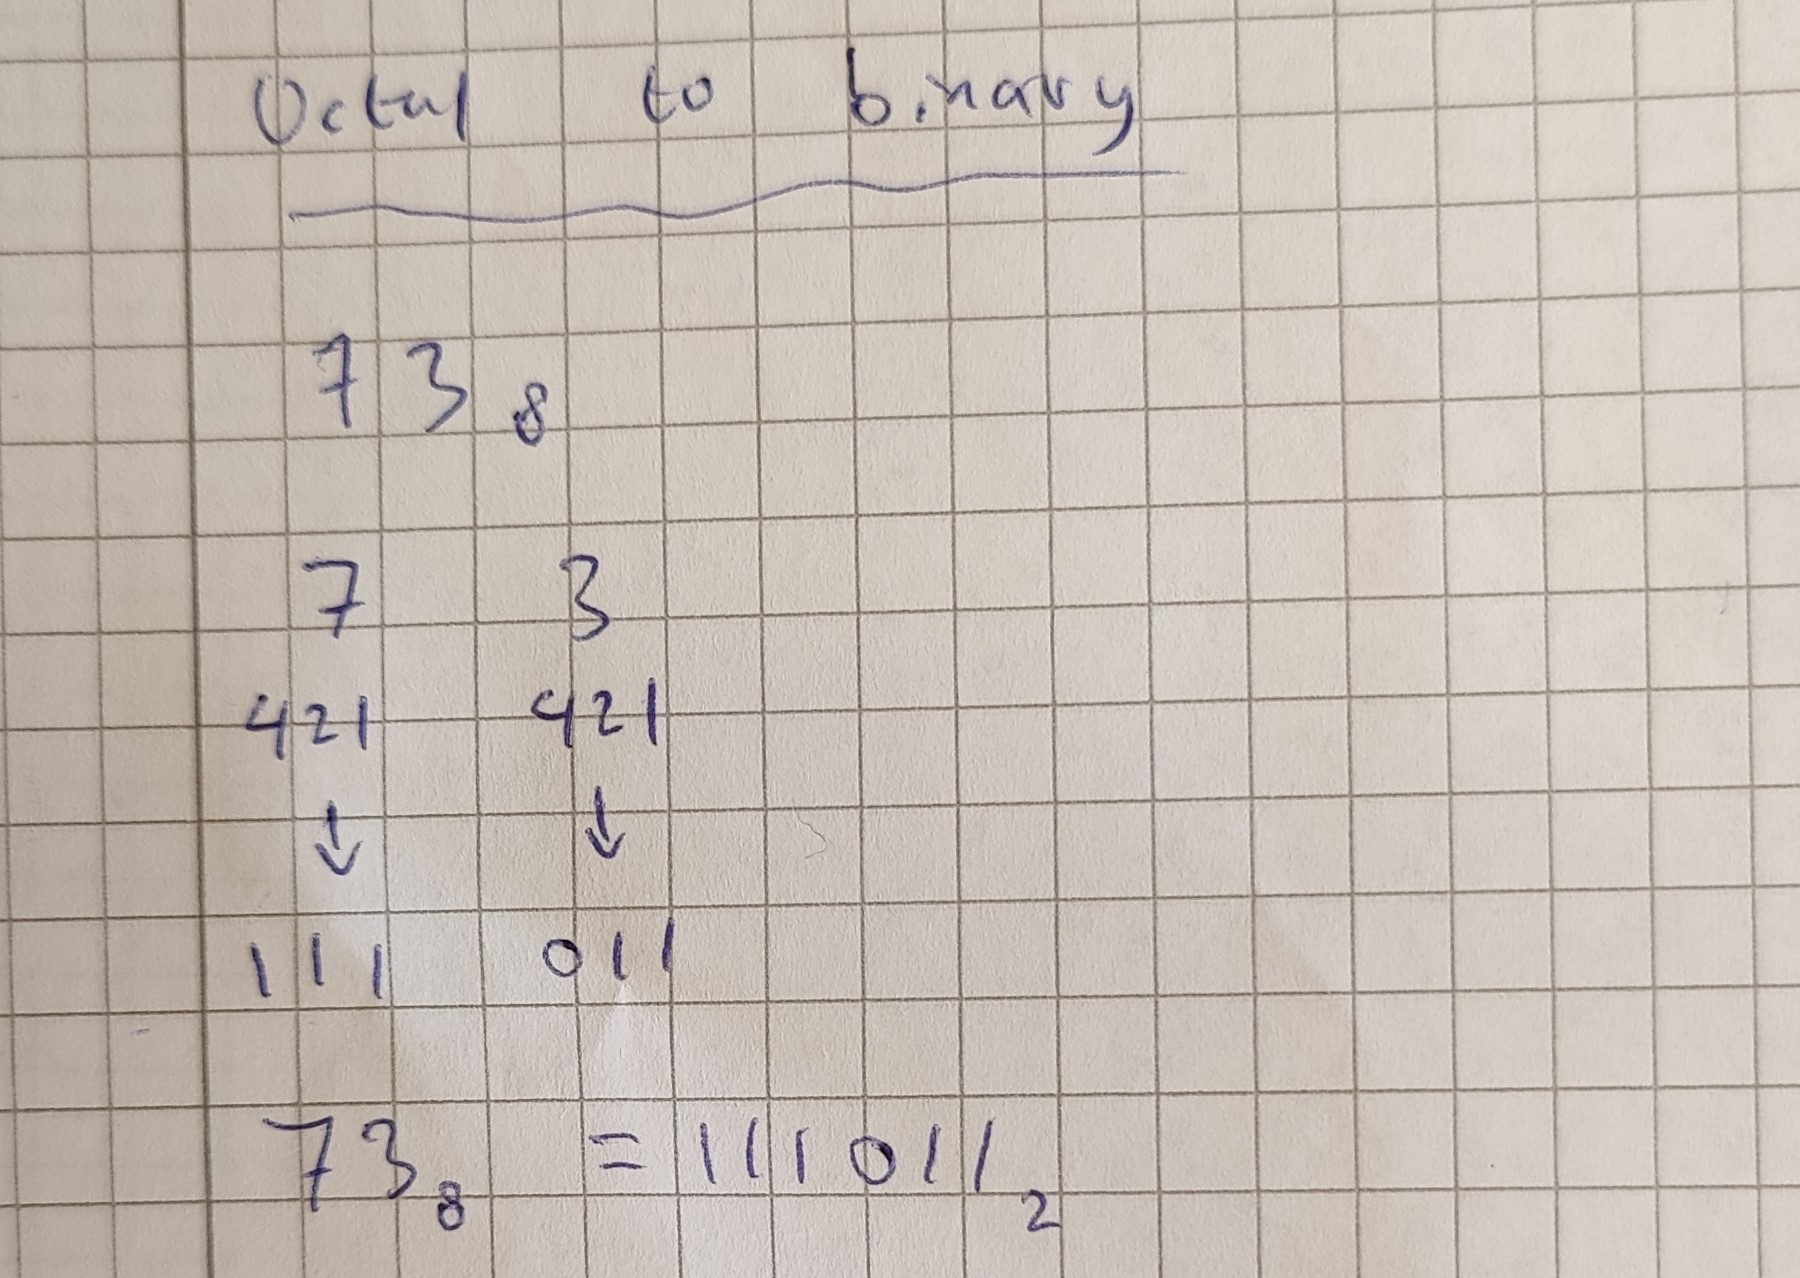 Octal to binary
73₈
7 3
421 421
↓ ↓
111 011
73₈ = 111011₂